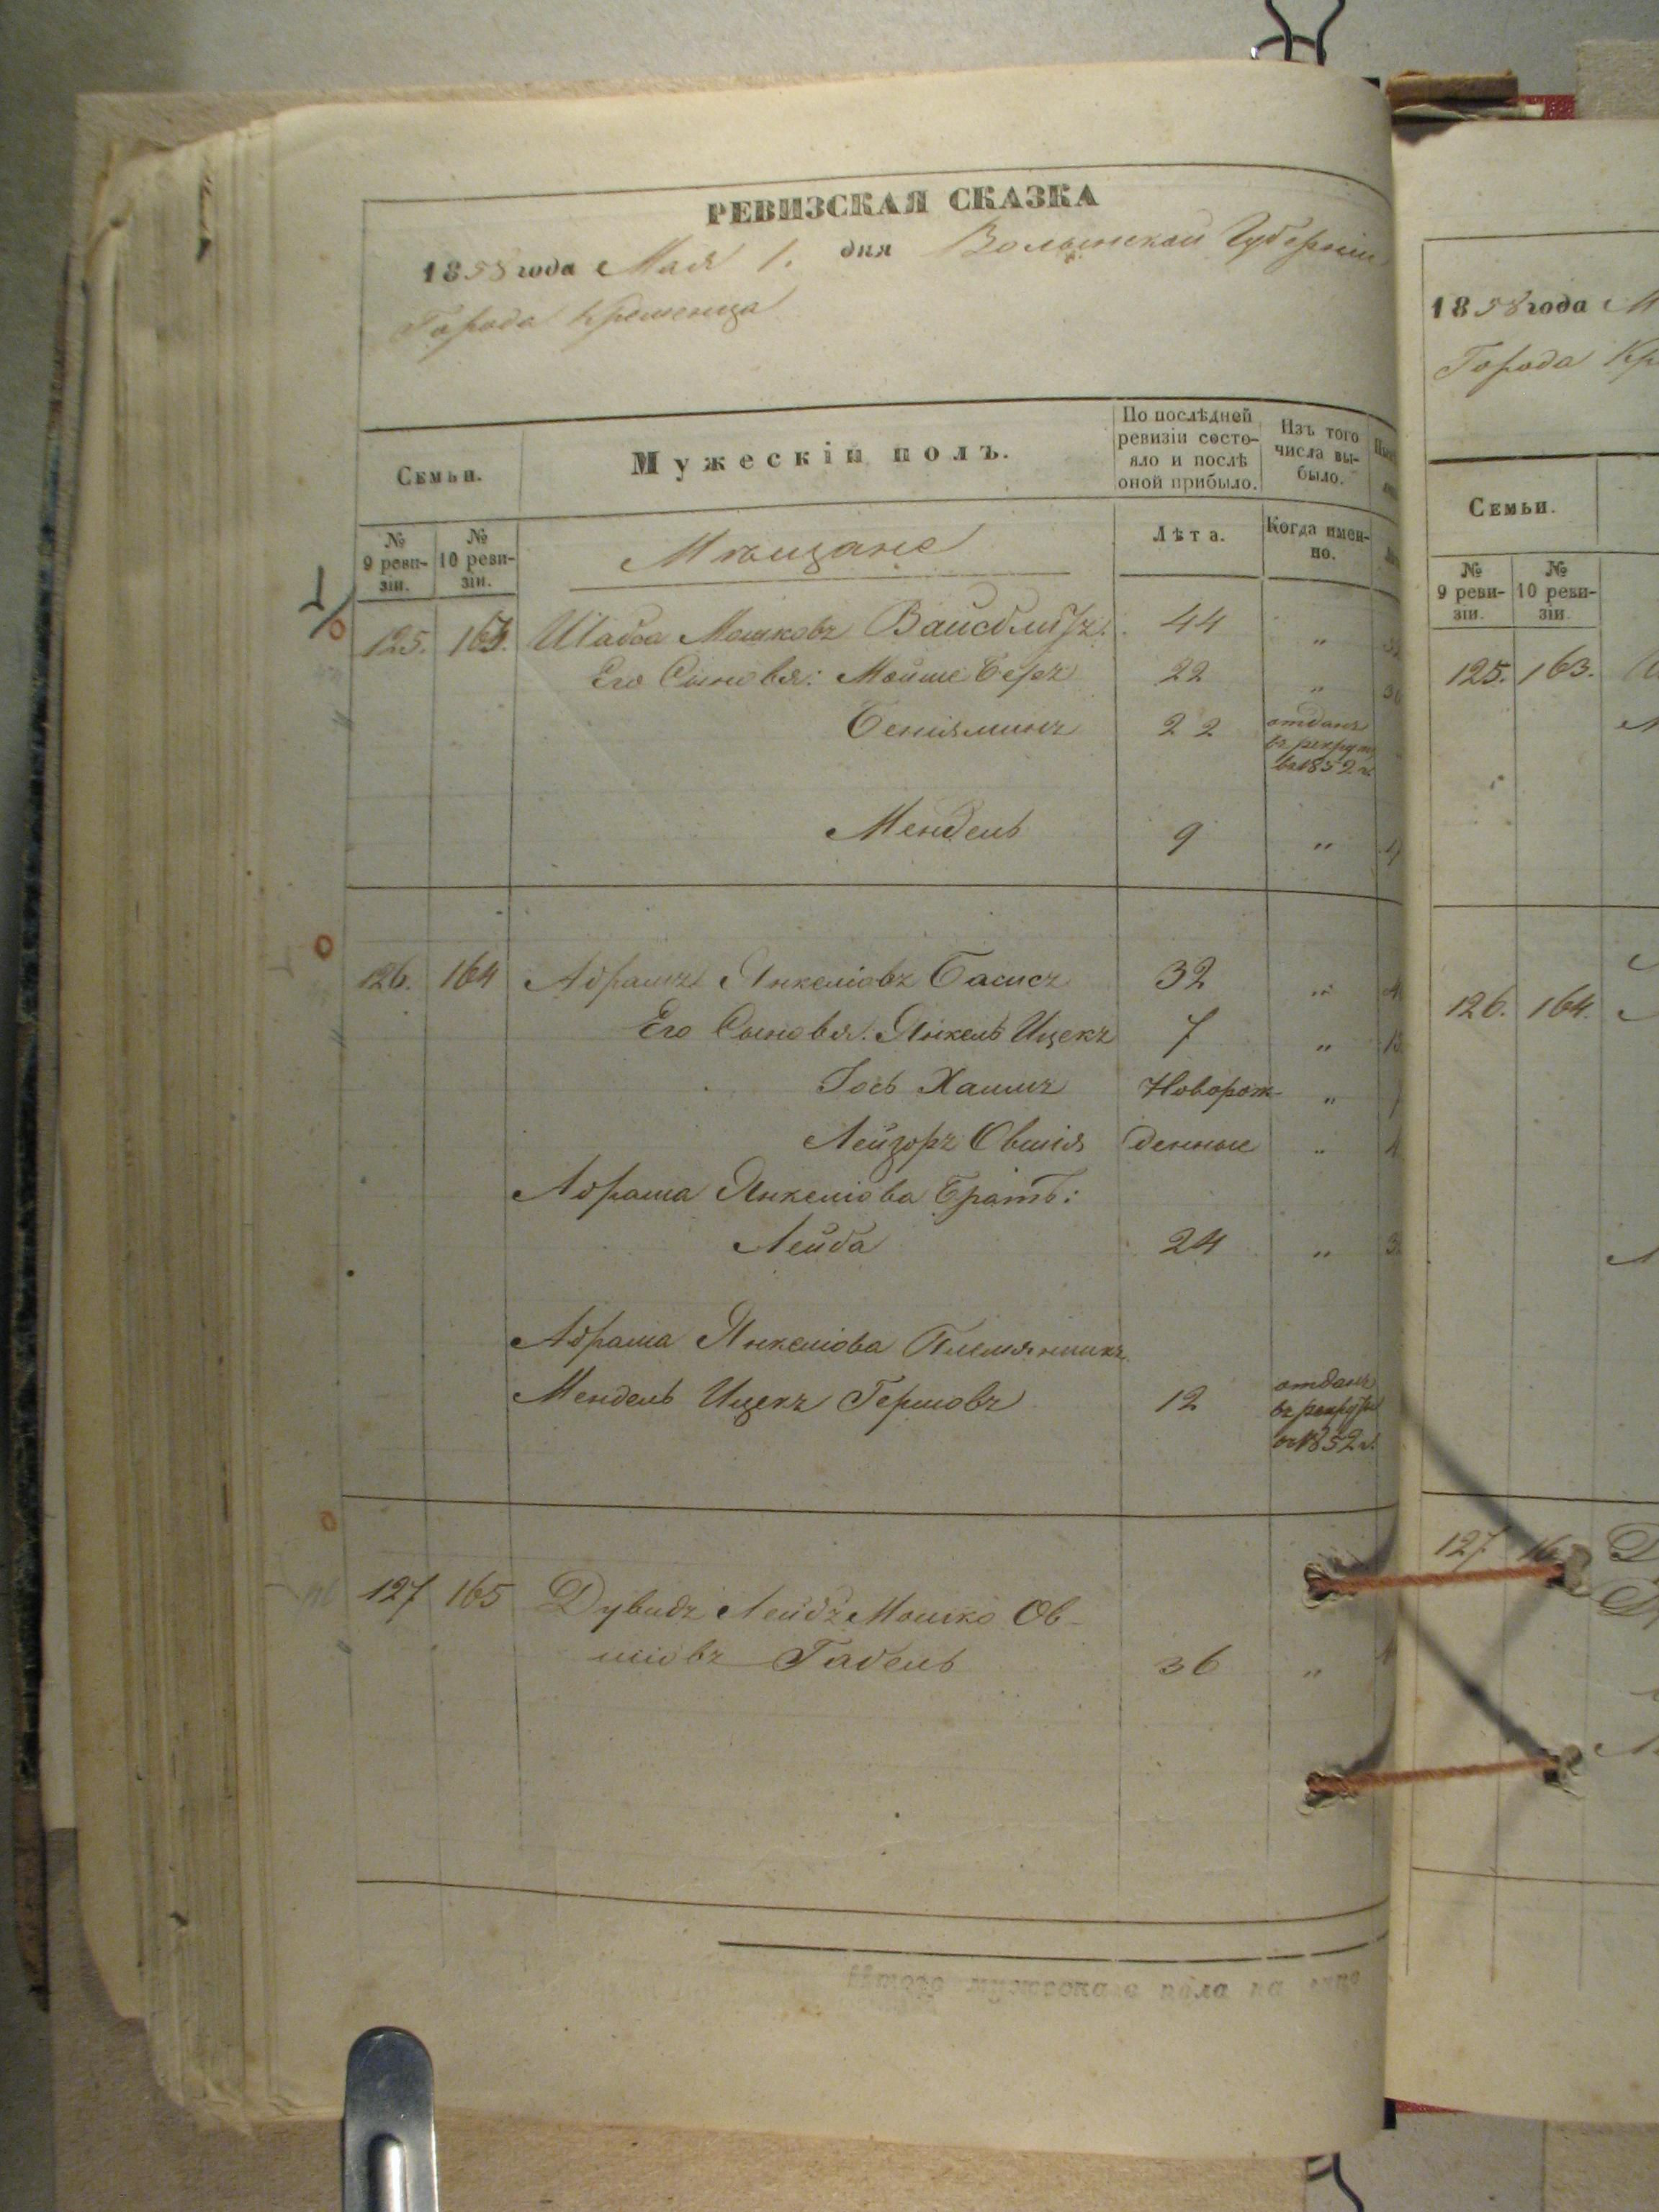 РЕВИЗСКАЯ СКАЗКА
1858 года Мая 1. дня Волынской Губерніи
Города Кременца
Семьи.
Мужескій полъ.
По послѣдней ревизіи состо-
яло и послѣ
оной прибыло.
Изъ того
числа вы-
было.
№
9 реви-
зіи.
№
10 реви-
зіи.
Мѣщане
Лѣта.
Когда имен-
но.
125. 163. Шабса Мошковъ Вайсблитъ. 44 „
Его Сыновья: Мойше Беръ 22 „
Беніяминъ 22 отданъ
въ рекруты
въ 1852 г.
Мендель 9 „
126. 164 Абрамъ Янкеліовъ Басисъ 32 „
Его Сыновья: Янкель Ицекъ 7 „
Іось Хаимъ Новорож- „
Лейзоръ Овшія денные „
Абрама Янкеліова Братъ:
Лейба 24 „
Абрама Янкеліова Племянникъ
Мендель Ицекъ Гершовъ 12 отданъ
въ рекруты
въ 1852 г.
127 165 Дувидъ Лейбъ Мошко Ов-
шіовъ Габель 36 „
Итого мужеска пола на лицо
1858 года М
Города Кр
Семьи.
№
9 реви-
зіи.
№
10 реви-
зіи
125. 163.
126. 164.
127